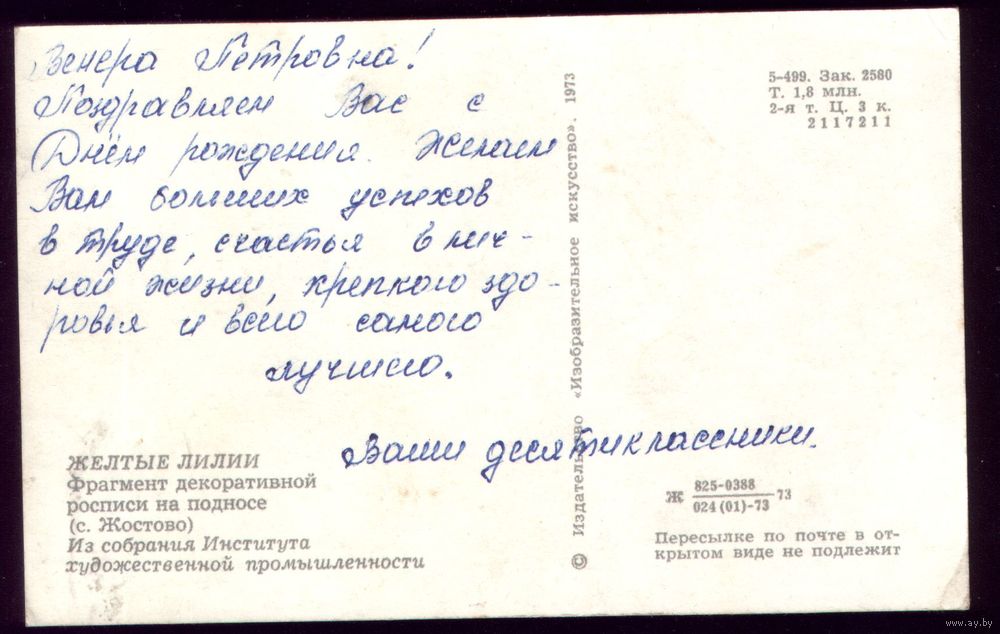 Венера Петровна!
Поздравляем Вас с
Днём рождения. Желаем
Вам больших успехов
в труде, счастья в лич-
ной жизни, крепкого здо-
ровья и всего самого
лучшего.
Ваши десятиклассники.
ЖЕЛТЫЕ ЛИЛИИ
Фрагмент декоративной
росписи на подносе
(с. Жостово)
Из собрания Института
художественной промышленности
© Издательство «Изобразительное искусство». 1973
5-499. Зак. 2580
Т. 1,8 млн.
2-я т. Ц. 3 к.
2117211
Ж 825-0388/024(01)-73 73
Пересылке по почте в от-
крытом виде не подлежит
www.ay.by